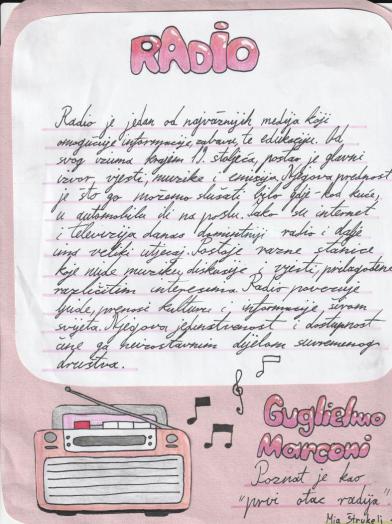 RADIO
Radio je jedan od najvažnijih medija koji
omogućuje informacije, zabavu, te edukaciju. Od
svog izuma krajem 19. stoljeća, postao je glavni
izvor vijesti, muzike i emisija. Njegova prednost
je što ga možemo slušati bilo gdje - kod kuće,
u automobilu ili na poslu. Iako su internet
i televizija danas dominantniji radio i dalje
ima veliki utjecaj. Postoje razne stanice
koje nude muziku, diskusije, vijesti, prilagođene
različitim interesima. Radio povezuje
ljude, prenosi kulturu i informacije, širom
svijeta. Njegova jedinstvenost i dostupnost
čine ga neizostavnim dijelom suvremenog
društva.
Guglielmo
Marconi
Poznat je kao
"prvi otac radija"
Mia Štrukelj